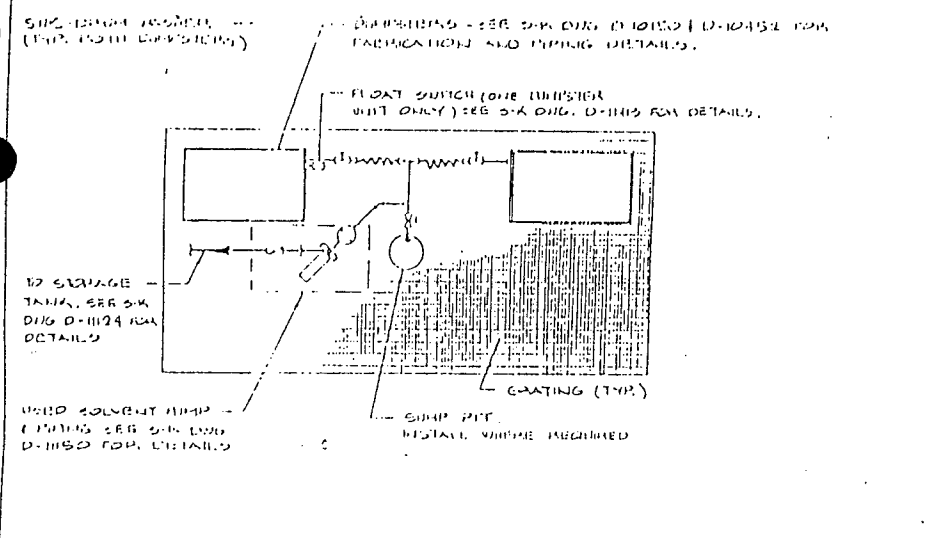 (TYP. BOTH DUMPSTERS)
DUMPSTERS - SEE S-K DWG D-10150 & D-10452 FOR
FABRICATION AND PIPING DETAILS.
FLOAT SWITCH (ONE DUMPSTER
UNIT ONLY) SEE S-K DWG. D-11115 FOR DETAILS.
TO STORAGE
TANK, SEE S-K
DWG D-11124 FOR
DETAILS
GRATING (TYP.)
USED SOLVENT PUMP
PIPING SEE S-K DWG
D-11150 FOR DETAILS
SUMP PIT.
INSTALL WHERE REQUIRED